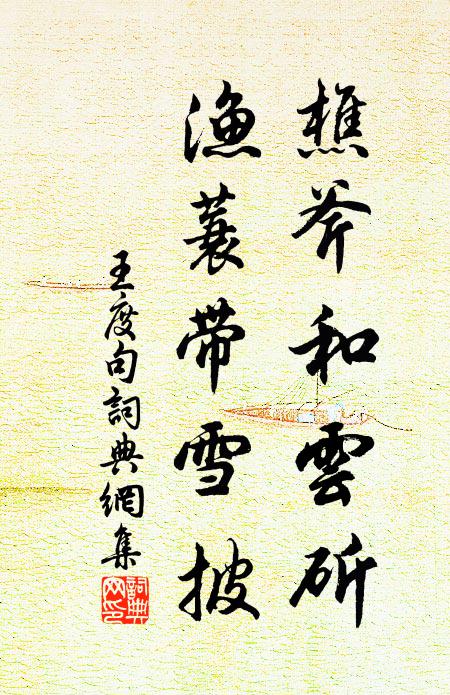 樵斧和雲斫
漁蓑帶雪披
王度句詞典網集
詞典網印